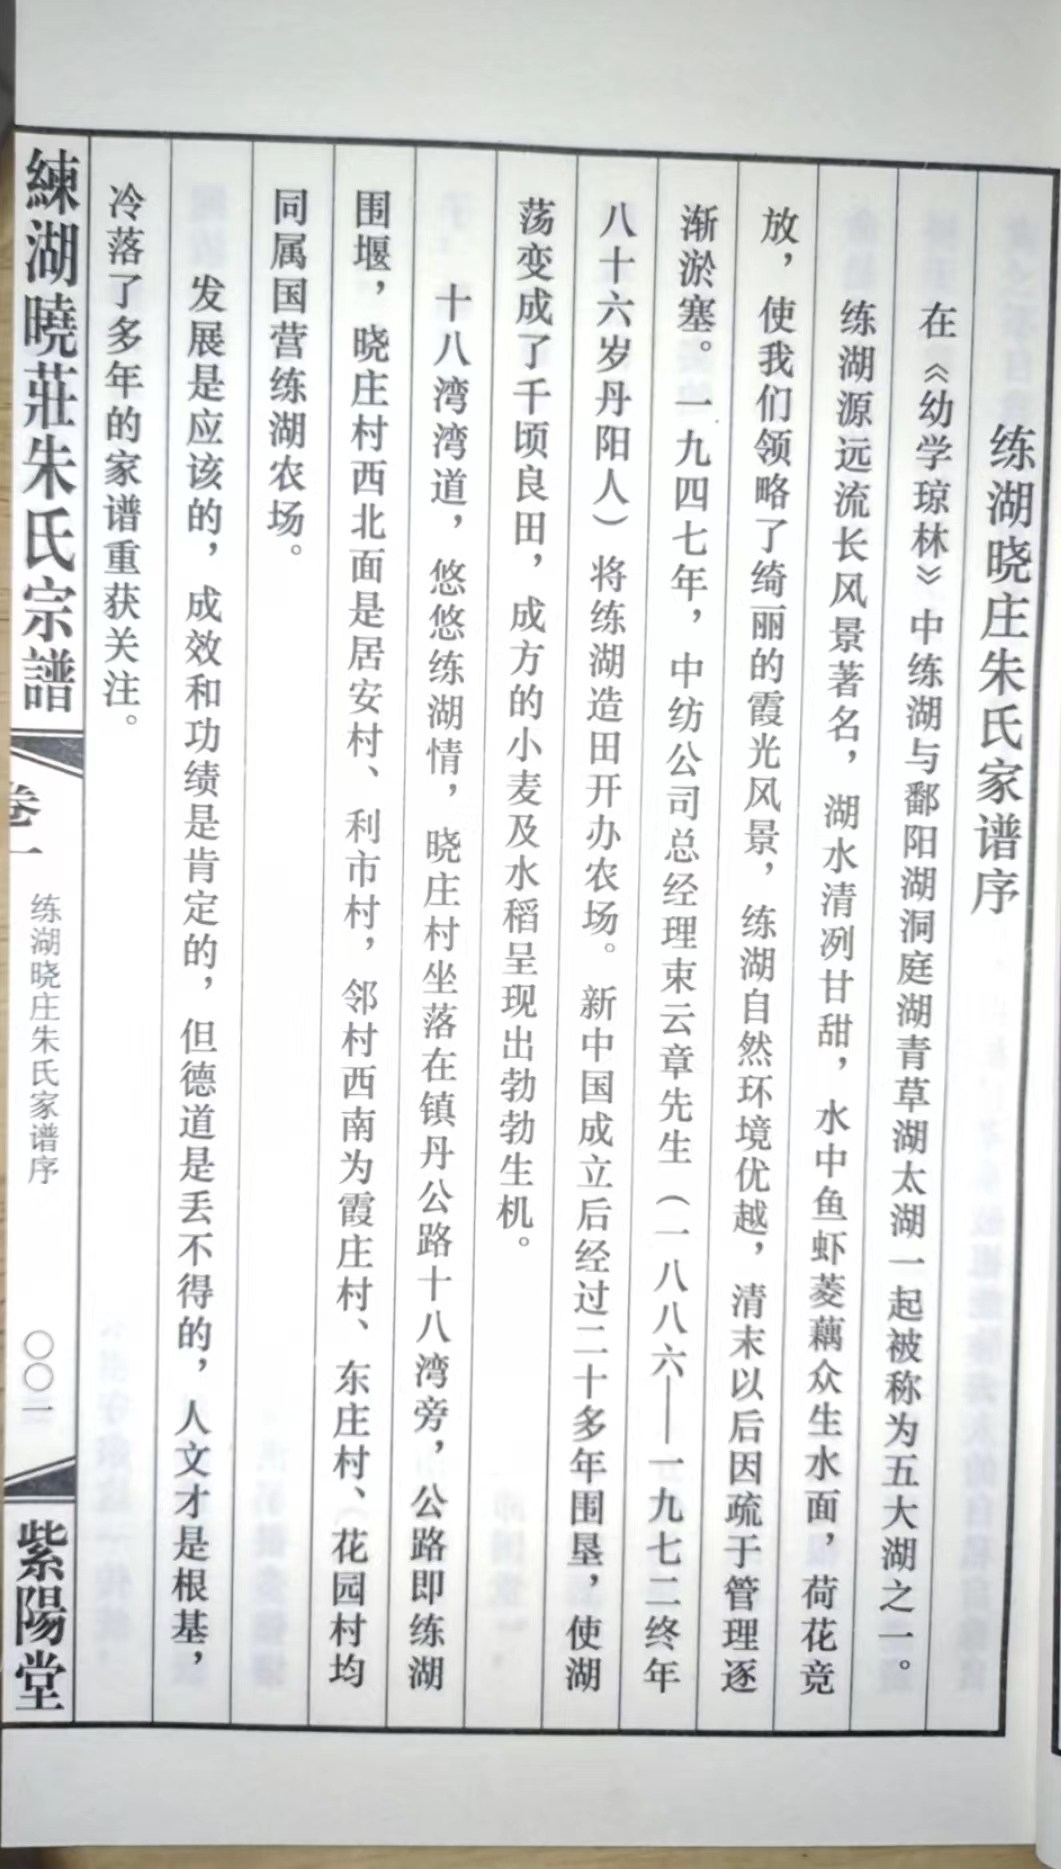 练湖晓庄朱氏家谱序
在《幼学琼林》中练湖与鄱阳湖洞庭湖青草湖太湖一起被称为五大湖之一。
练湖源远流长风景著名，湖水清冽甘甜，水中鱼虾菱藕众生水面，荷花竞
放，使我们领略了绮丽的霞光风景，练湖自然环境优越，清末以后因疏于管理逐
渐淤塞。一九四七年，中纺公司总经理束云章先生（一八八六——一九七二终年
八十六岁丹阳人）将练湖造田开办农场。新中国成立后经过二十多年围垦，使湖
荡变成了千顷良田，成方的小麦及水稻呈现出勃勃生机。
十八湾湾道，悠悠练湖情，晓庄村坐落在镇丹公路十八湾旁，公路即练湖
围堰，晓庄村西北面是居安村、利市村，邻村西南为霞庄村、东庄村、花园村均
同属国营练湖农场。
发展是应该的，成效和功绩是肯定的，但德道是丢不得的，人文才是根基，
冷落了多年的家谱重获关注。
練湖曉莊朱氏宗譜
卷一
练湖晓庄朱氏家谱序
〇〇一
紫陽堂